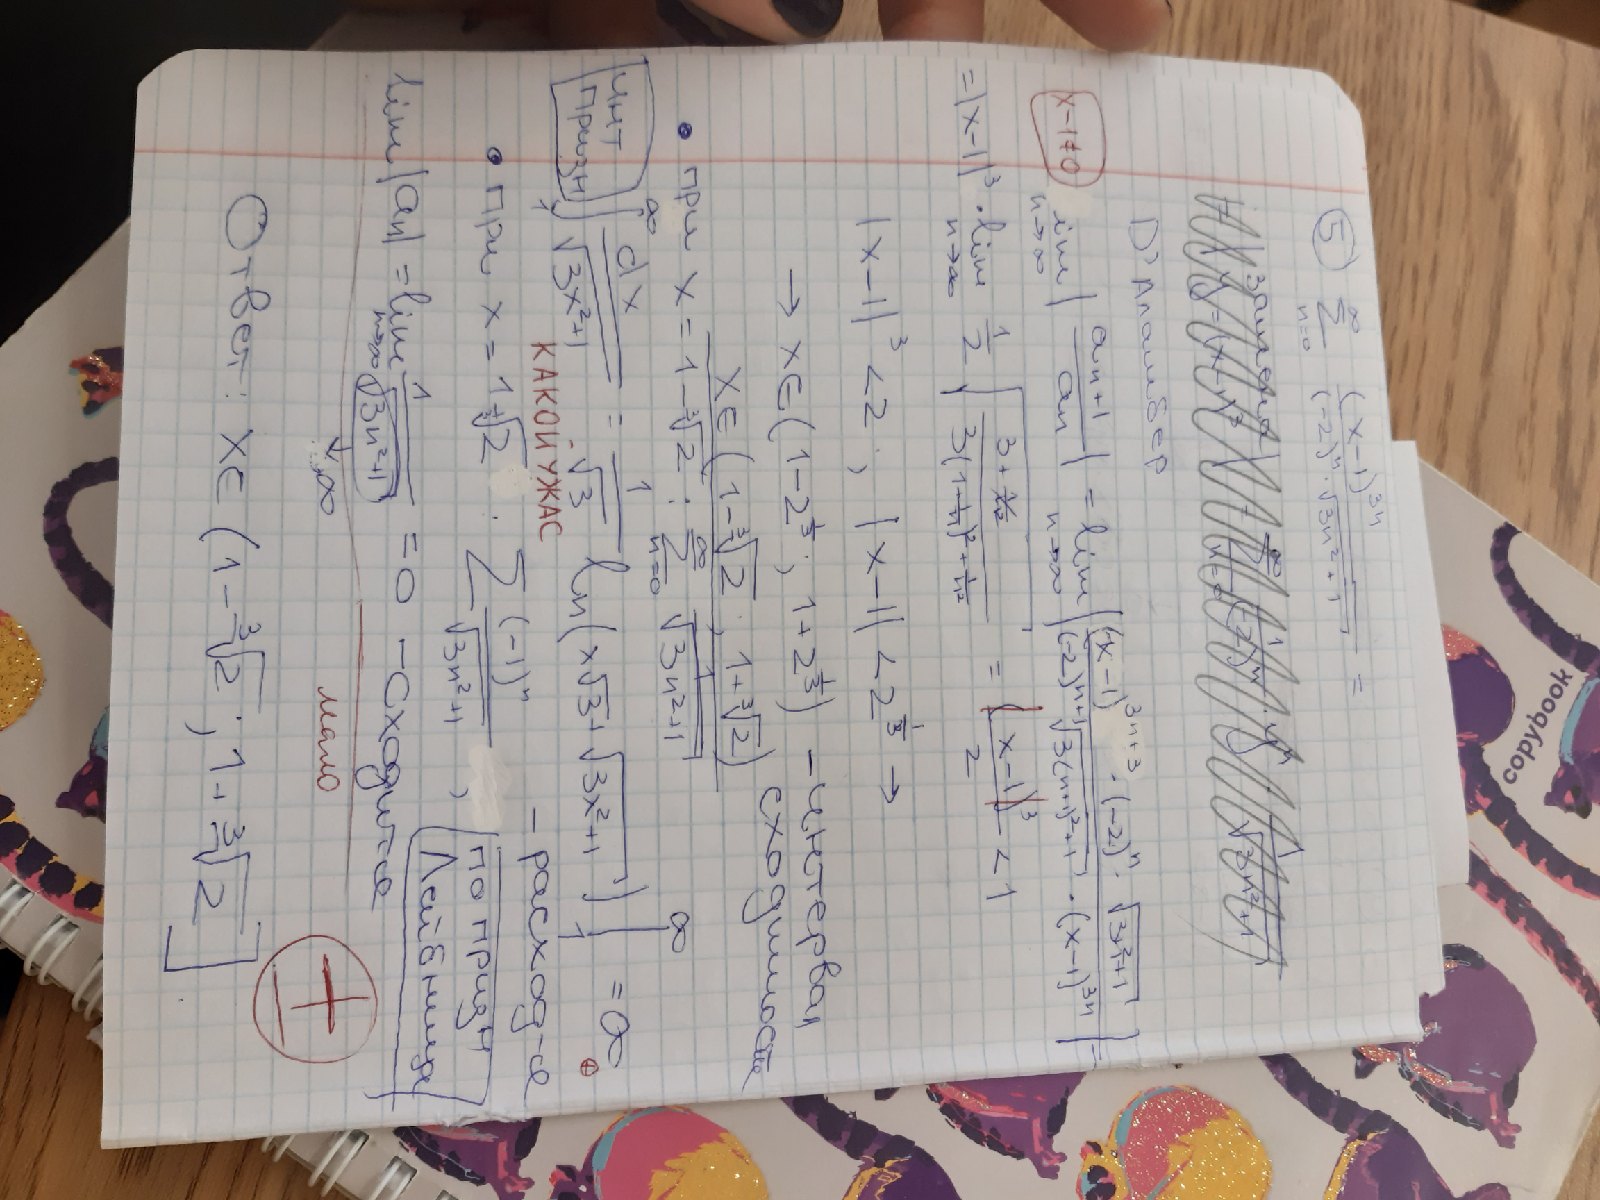 copybook
5 ∞∑n=0 (x-1)^3n / (-2)^n · √3n²+1 =
замена
Д'Аламбер
x-1≠0 lim n→∞ | an+1 / an | = lim n→∞ | (x-1)^3n+3 · (-2)^n · √3n²+1 / (-2)^n+1 √3(n+1)²+1 · (x-1)^3n | =
= |x-1|³ · lim n→∞ 1/2 √ 3+1/n² / 3(1+1/n)²+1/n² = |x-1|³ / 2 < 1
|x-1|³ < 2 ; |x-1| < 2^1/3 →
→ x∈(1-2^1/3 ; 1+2^1/3) - интервал
сходимости
x∈(1-∛2 ; 1+∛2)
• при x = 1-∛2 : ∞∑n=0 1/√3n²+1
Инт
призн ∞∫1 dx/√3x²+1 = 1/√3 ln(x√3+√3x²+1) |∞1 = ∞
КАКОЙ УЖАС
- расход-ся
• при x = 1+∛2 : ∑ (-1)^n / √3n²+1 , по призн
Лейбница
lim |an| = lim n→∞ 1/√3n²+1 = 0 - сходится
↓ ∞
мало
±
Ответ: x∈(1-∛2 ; 1+∛2].